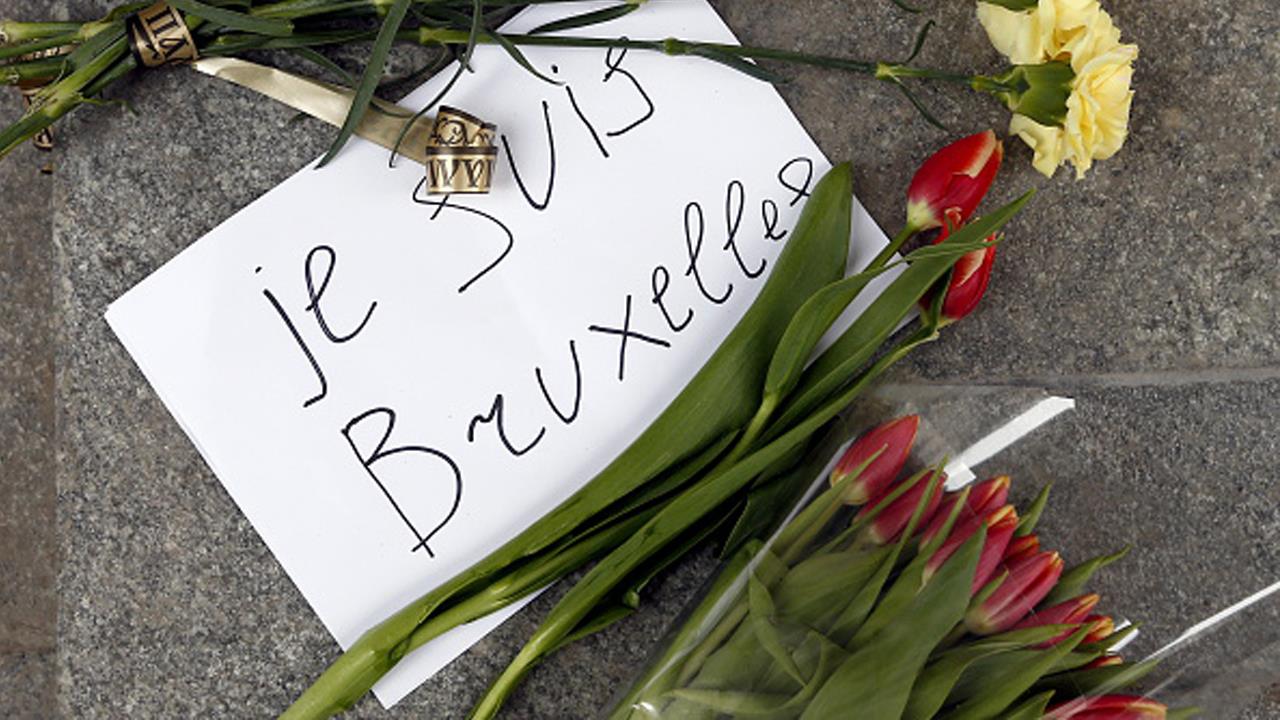 je suis
Bruxelles